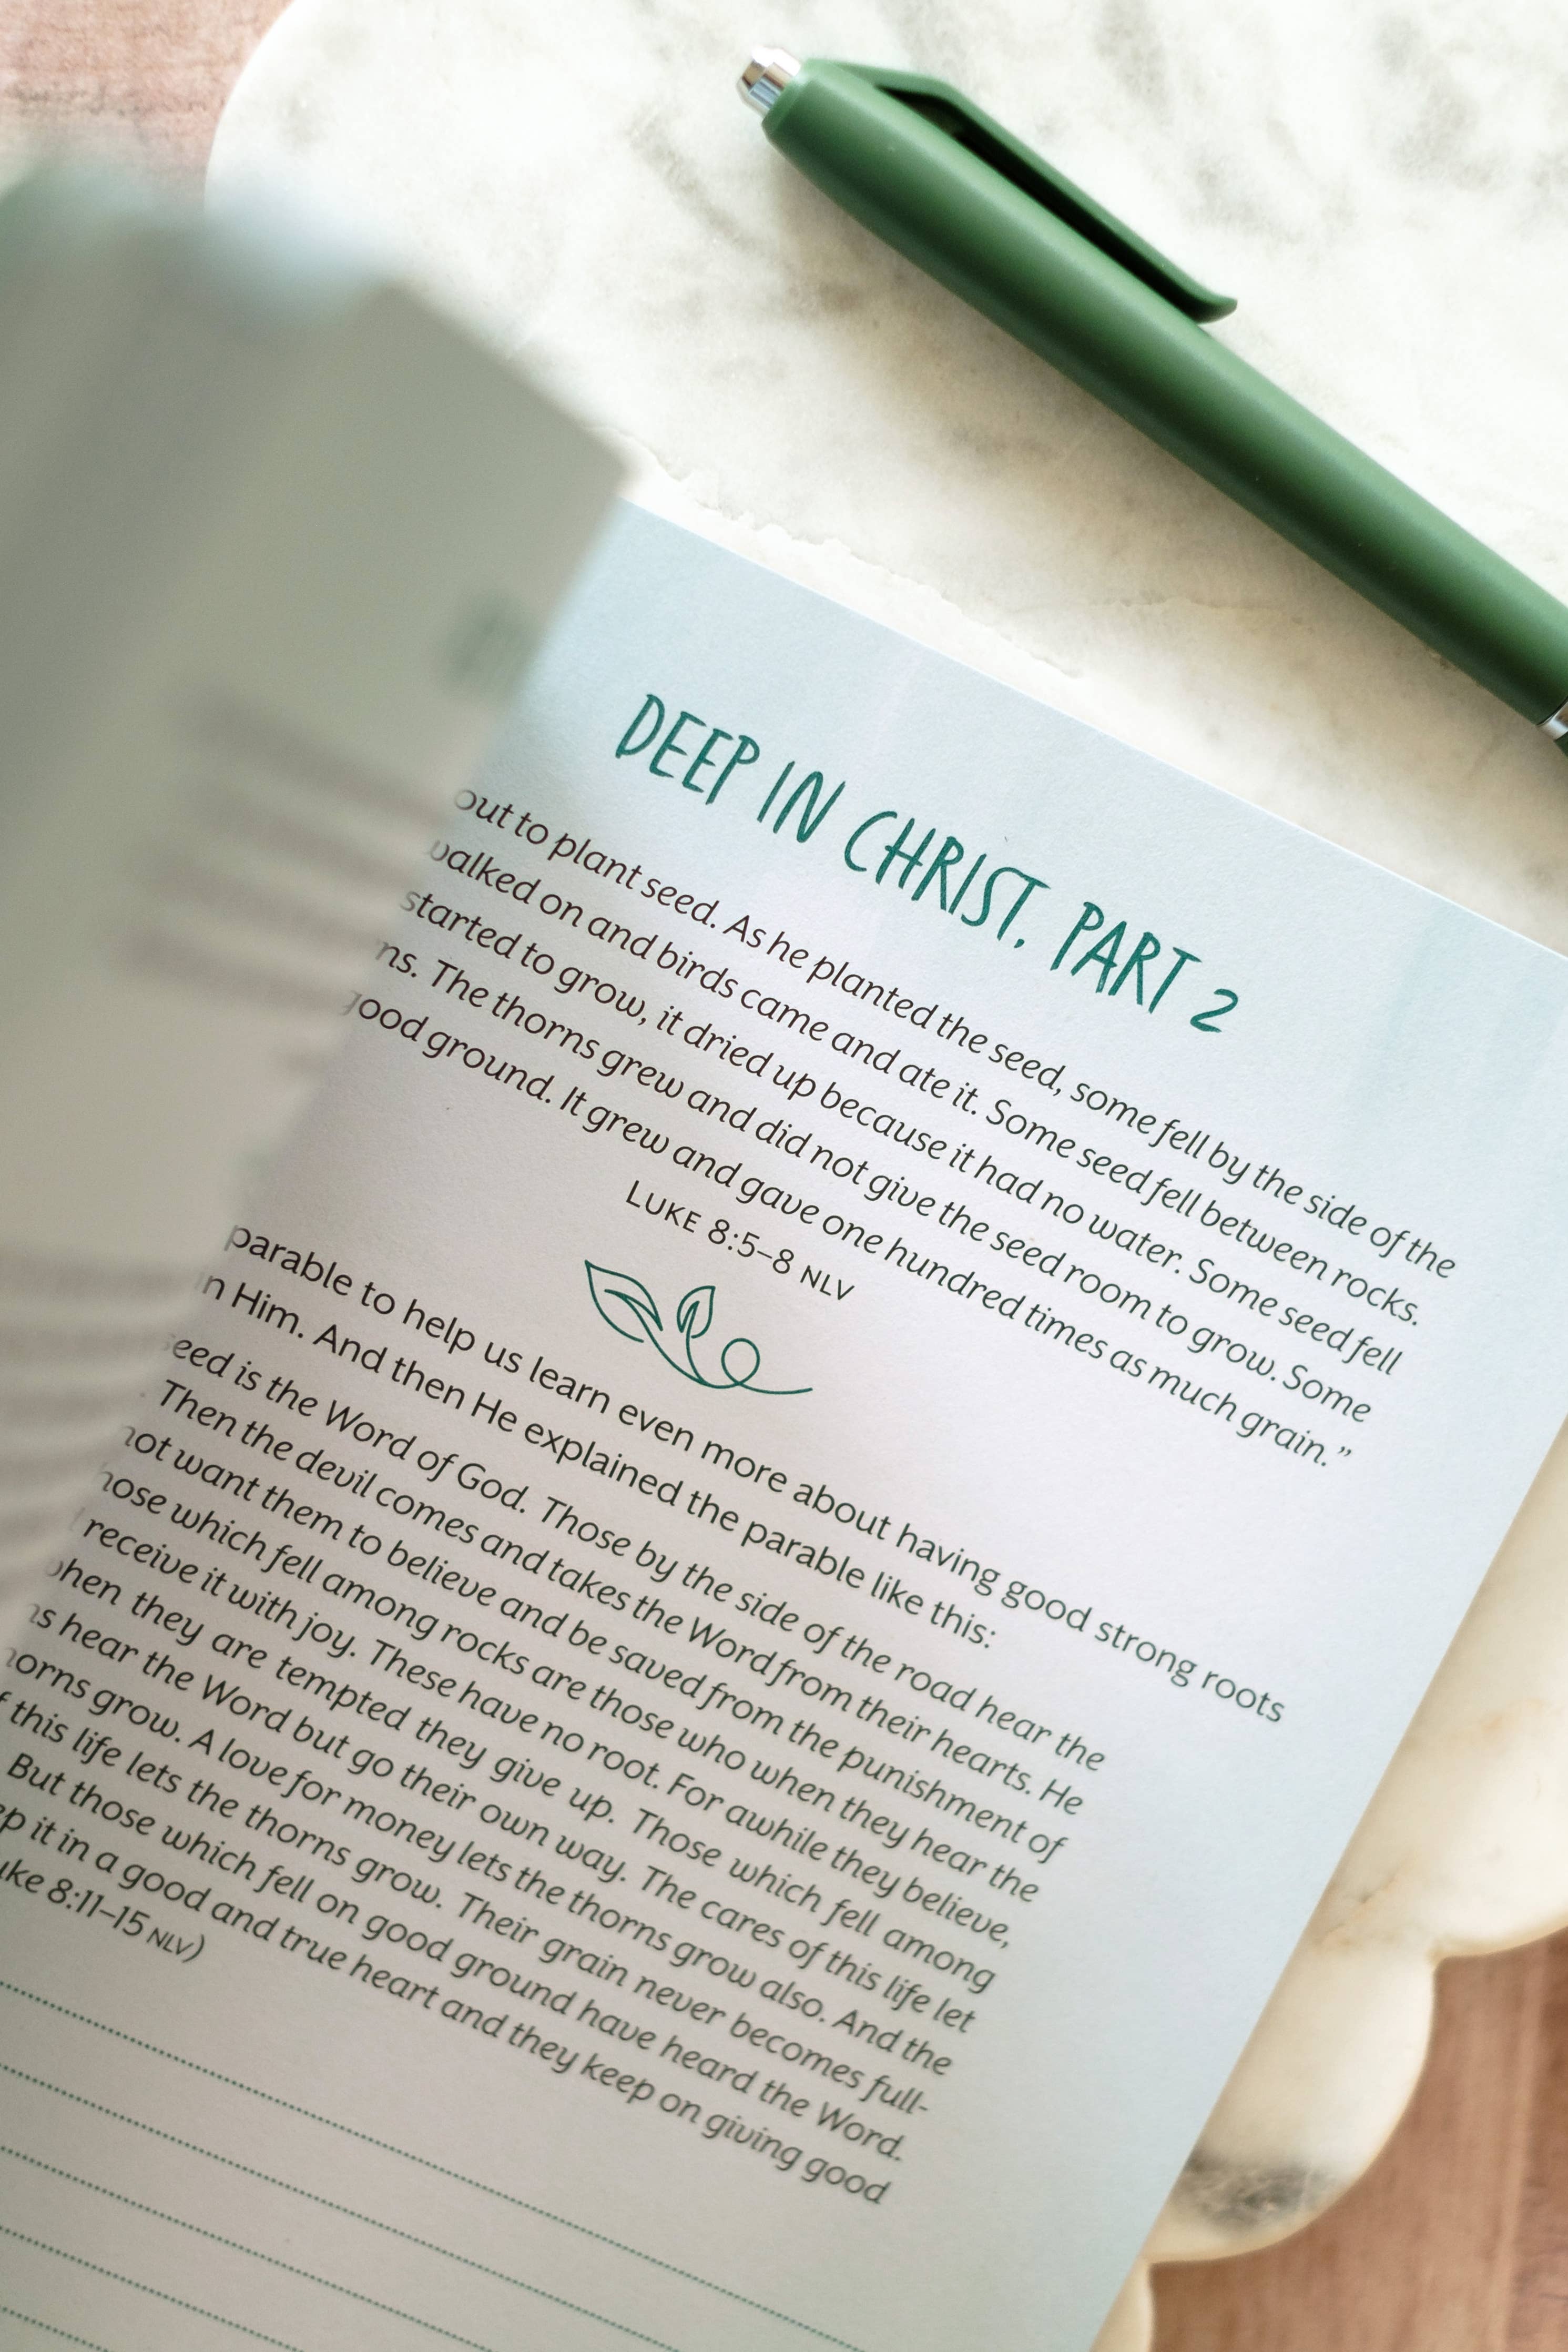 DEEP IN CHRIST, PART 2
out to plant seed. As he planted the seed, some fell by the side of the
walked on and birds came and ate it. Some seed fell between rocks.
started to grow, it dried up because it had no water. Some seed fell
The thorns grew and did not give the seed room to grow. Some
good ground. It grew and gave one hundred times as much grain.”
LUKE 8:5–8 NLV
parable to help us learn even more about having good strong roots
in Him. And then He explained the parable like this:
seed is the Word of God. Those by the side of the road hear the
Then the devil comes and takes the Word from their hearts. He
not want them to believe and be saved from the punishment of
which fell among rocks are those who when they hear the
receive it with joy. These have no root. For awhile they believe,
when they are tempted they give up. Those which fell among
hear the Word but go their own way. The cares of this life let
grow. A love for money lets the thorns grow also. And the
this life lets the thorns grow. Their grain never becomes full-
But those which fell on good ground have heard the Word.
it in a good and true heart and they keep on giving good
8:11–15 NLV)